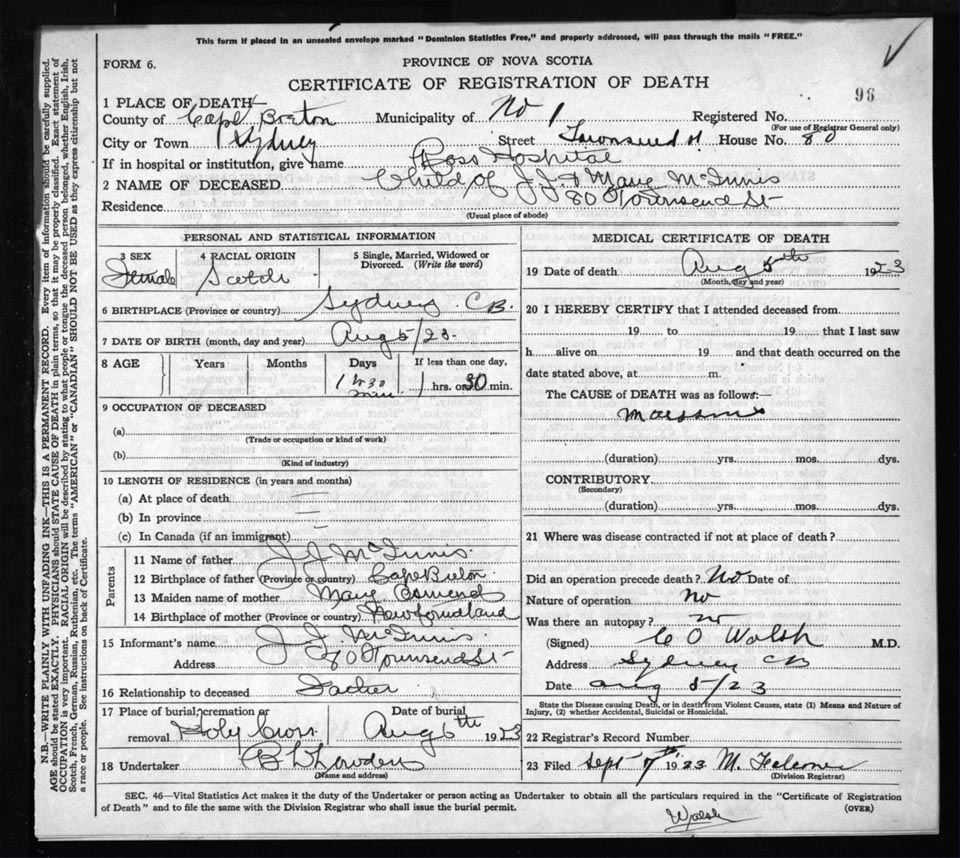 This form if placed in an unsealed envelope marked "Dominion Statistics Free," and properly addressed, will pass through the mails "FREE."
FORM 6.
PROVINCE OF NOVA SCOTIA
CERTIFICATE OF REGISTRATION OF DEATH
96
1 PLACE OF DEATH—
County of Cape Breton Municipality of No 1 Registered No.
(For use of Registrar General only)
City or Town Sydney Street Townsend St House No. 80
If in hospital or institution, give name Ross Hospital
2 NAME OF DECEASED Child of J J & Marie McInnis
Residence 80 Townsend St
(Usual place of abode)
PERSONAL AND STATISTICAL INFORMATION
3 SEX Female
4 RACIAL ORIGIN Scotch
5 Single, Married, Widowed or Divorced. (Write the word)
6 BIRTHPLACE (Province or country) Sydney C B.
7 DATE OF BIRTH (month, day and year) Aug 5/23.
8 AGE Years Months Days If less than one day,
1 hr 30 min 1 hrs. or 30 min.
9 OCCUPATION OF DECEASED
(a)
(Trade or occupation or kind of work)
(b)
(Kind of industry)
10 LENGTH OF RESIDENCE (in years and months)
(a) At place of death
(b) In province
(c) In Canada (if an immigrant)
Parents
11 Name of father J J McInnis.
12 Birthplace of father (Province or country) Cape Breton
13 Maiden name of mother Marie Osmond
14 Birthplace of mother (Province or country) Newfoundland
15 Informant's name J J McInnis
Address 80 Townsend St
16 Relationship to deceased Father
17 Place of burial, cremation or removal Holy Cross Date of burial Aug 6th 1923
18 Undertaker
(Name and address)
MEDICAL CERTIFICATE OF DEATH
19 Date of death Aug 5th 1923
(Month, day and year)
20 I HEREBY CERTIFY that I attended deceased from
19 to 19 that I last saw
h alive on 19 and that death occurred on the
date stated above, at m.
The CAUSE of DEATH was as follows:—
(duration) yrs. mos. dys.
CONTRIBUTORY
(Secondary)
(duration) yrs. mos. dys.
21 Where was disease contracted if not at place of death?
Did an operation precede death? No Date of
Nature of operation no
Was there an autopsy? no
(Signed) C O Walsh M.D.
Address Sydney CB
Date Aug 5/23
State the Disease causing Death, or in death from Violent Causes, state (1) Means and Nature of Injury, (2) whether Accidental, Suicidal or Homicidal.
22 Registrar's Record Number
23 Filed Sept 7th 1923 M.
(Division Registrar)
SEC. 46—Vital Statistics Act makes it the duty of the Undertaker or person acting as Undertaker to obtain all the particulars required in the "Certificate of Registration
of Death" and to file the same with the Division Registrar who shall issue the burial permit. (OVER)
Walsh
N.B.—WRITE PLAINLY WITH UNFADING INK—THIS IS A PERMANENT RECORD. Every item of information should be carefully supplied.
AGE should be stated EXACTLY. PHYSICIANS should STATE CAUSE OF DEATH in plain terms, so that it may be properly classified. Exact statement of
OCCUPATION is very important. RACIAL ORIGIN will be described by stating to what people or tongue the deceased person belonged, whether English, Irish,
Scotch, French, German, Russian, Ruthenian, etc. The terms "AMERICAN" or "CANADIAN" SHOULD NOT BE USED as they express citizenship but not
a race or people. See instructions on back of Certificate.